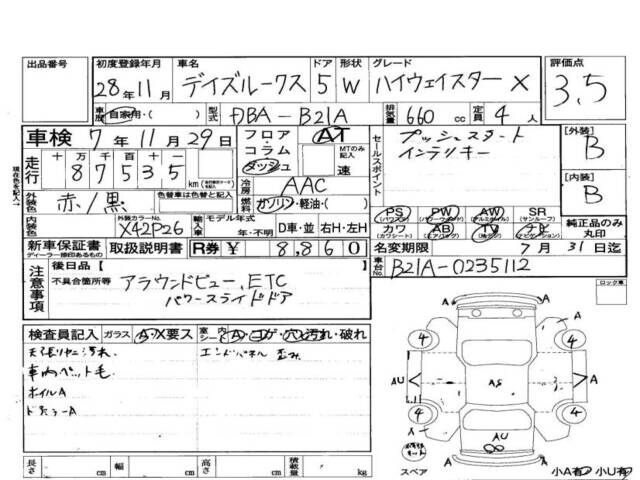 出品番号 初度登録年月 車名 ドア 形状 グレード 評価点
28年11月 デイズルークス 5 W ハイウェイスター X 3.5
車歴 自家用・( ) 型式 DBA-B21A 排気量 660 cc 定員 4 人
車検 7年11月29日 フロア・コラム ダッシュ AT MTのみ記入 速
走行 十万 万 千 百 十 一
87535 km
冷房 AAC
セールスポイント プッシュスタート
インテリキー
[外装] B
[内装] B
外装色 赤/黒 色替車は色替と記入 元色 燃料 ガソリン・軽油・( )
PS (パワステ) PW (パワーウインド) AW (アルミホイル) SR (サンルーフ) 純正品のみ丸印
カワ (カワシート) AB (エアバッグ) TV ナビ (ナビゲーション)
内装色 外装カラーNo. X42P26 輸入車 モデル年式 年・不明 D車・並 右H・左H
新車保証書 ディーラー捺印あるもの 取扱説明書 R券 ¥ 8,860 名変期限 7月31日迄
車台No. B21A-0235112
注意事項 後日品 [ ]
不具合箇所等 アラウンドビュー、ETC
パワースライドドア
ロック車
検査員記入 ガラス A・X要ス 室内 シート A・コゲ・穴・汚れ・破れ
天張りヤニ汚れ
車内ペット毛
ホイルA
エンドパネル 歪み
4 A 4
AU A AS A
4 A 4
AU
スペア 小A有 小U有
長さ cm 幅 cm 高さ cm 積載量 kg